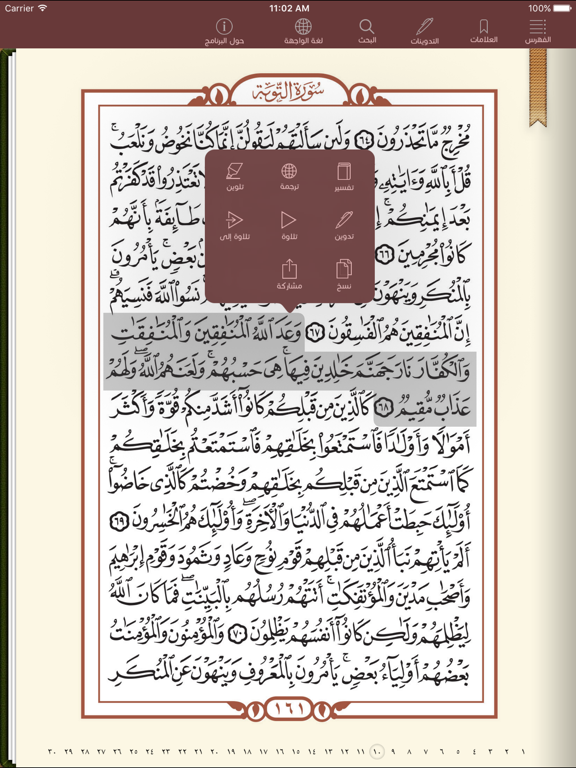 Carrier 11:02 AM 100%
الفهرس العلامات التدوينات البحث لغة الواجهة حول البرنامج
سُورَةُ التَّوْبَةِ
مُخْرِجٌ مَّا تَحْذَرُونَ ٦٤ وَلَئِن سَأَلْتَهُمْ لَيَقُولُنَّ إِنَّمَا كُنَّا نَخُوضُ وَنَلْعَبُ ۚ
قُلْ أَبِاللَّهِ وَءَايَٰتِهِۦ تَعْتَذِرُوا۟ قَدْ كَفَرْتُم
بَعْدَ إِيمَٰنِكُمْ ۚ طَآئِفَةًۢ بِأَنَّهُمْ
كَانُوا۟ مُجْرِمِينَ ٦٦ بَعْضٍ ۚ يَأْمُرُونَ
بِالْمُنكَرِ وَيَنْهَوْنَ نَسُوا۟ اللَّهَ فَنَسِيَهُمْ ۗ
تفسير ترجمة تلوين
تدوين تلاوة تلاوة إلى
نسخ مشاركة
إِنَّ الْمُنَٰفِقِينَ هُمُ الْفَٰسِقُونَ ٦٧ وَعَدَ اللَّهُ الْمُنَٰفِقِينَ وَالْمُنَٰفِقَٰتِ
وَالْكُفَّارَ نَارَ جَهَنَّمَ خَٰلِدِينَ فِيهَا ۚ هِىَ حَسْبُهُمْ ۚ وَلَعَنَهُمُ اللَّهُ ۖ وَلَهُمْ
عَذَابٌ مُّقِيمٌ ٦٨ كَالَّذِينَ مِن قَبْلِكُمْ كَانُوٓا۟ أَشَدَّ مِنكُمْ قُوَّةً وَأَكْثَرَ
أَمْوَٰلًا وَأَوْلَٰدًا فَاسْتَمْتَعُوا۟ بِخَلَٰقِهِمْ فَاسْتَمْتَعْتُم بِخَلَٰقِكُمْ
كَمَا اسْتَمْتَعَ الَّذِينَ مِن قَبْلِكُم بِخَلَٰقِهِمْ وَخُضْتُمْ كَالَّذِى خَاضُوٓا۟ ۚ
أُو۟لَٰٓئِكَ حَبِطَتْ أَعْمَٰلُهُمْ فِى الدُّنْيَا وَالْءَاخِرَةِ ۖ وَأُو۟لَٰٓئِكَ هُمُ الْخَٰسِرُونَ ٦٩
أَلَمْ يَأْتِهِمْ نَبَأُ الَّذِينَ مِن قَبْلِهِمْ قَوْمِ نُوحٍ وَعَادٍ وَثَمُودَ وَقَوْمِ إِبْرَٰهِيمَ
وَأَصْحَٰبِ مَدْيَنَ وَالْمُؤْتَفِكَٰتِ ۚ أَتَتْهُمْ رُسُلُهُم بِالْبَيِّنَٰتِ ۖ فَمَا كَانَ اللَّهُ
لِيَظْلِمَهُمْ وَلَٰكِن كَانُوٓا۟ أَنفُسَهُمْ يَظْلِمُونَ ٧٠ وَالْمُؤْمِنُونَ وَالْمُؤْمِنَٰتُ
بَعْضُهُمْ أَوْلِيَآءُ بَعْضٍ ۚ يَأْمُرُونَ بِالْمَعْرُوفِ وَيَنْهَوْنَ عَنِ الْمُنكَرِ
١٦١
١ ٢ ٣ ٤ ٥ ٦ ٧ ٨ ٩ ١٠ ١١ ١٢ ١٣ ١٤ ١٥ ١٦ ١٧ ١٨ ١٩ ٢٠ ٢١ ٢٢ ٢٣ ٢٤ ٢٥ ٢٦ ٢٧ ٢٨ ٢٩ ٣٠